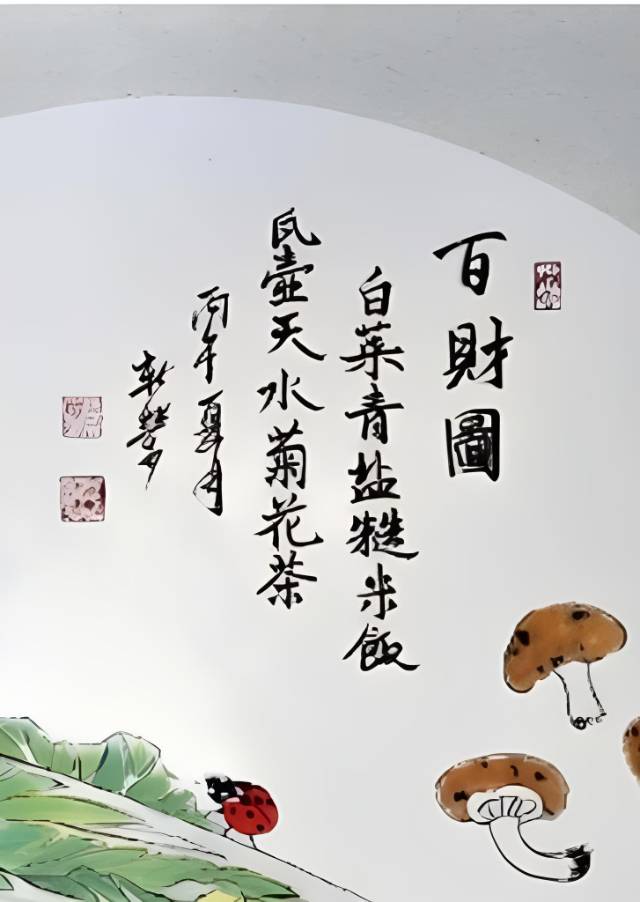 百財圖
白菜青盐糙米飯
瓦壺天水菊花茶
丙午夏月